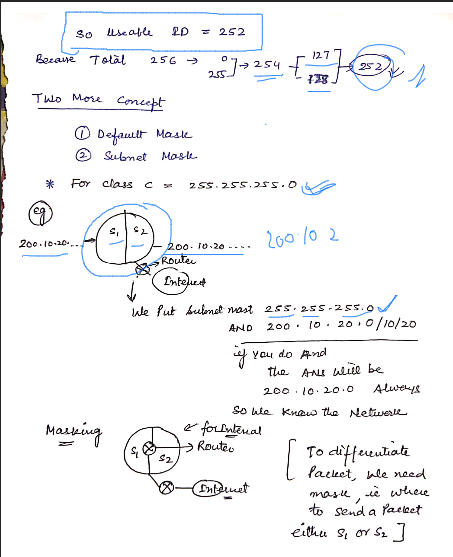 So Useable ID = 252
Because Total 256 → 0 255 ] → 254 - [ 127 128 ] → 252
Two More Concept
① Default Mask
② Subnet Mask
* For class C = 255.255.255.0
eg
S1 S2
200.10.20....
200.10.20.....
200.10.2
Router
Internet
We Put Subnet mast 255.255.255.0
AND 200.10.20.0/10/20
if you do And
the Ans will be
200.10.20.0 Always
So We know the Network
Masking
for Internal
S1 S2
Router
Internet
[ To differentiate
Packet, we need
mask, ie where
to send a Packet
either S1 or S2 ]